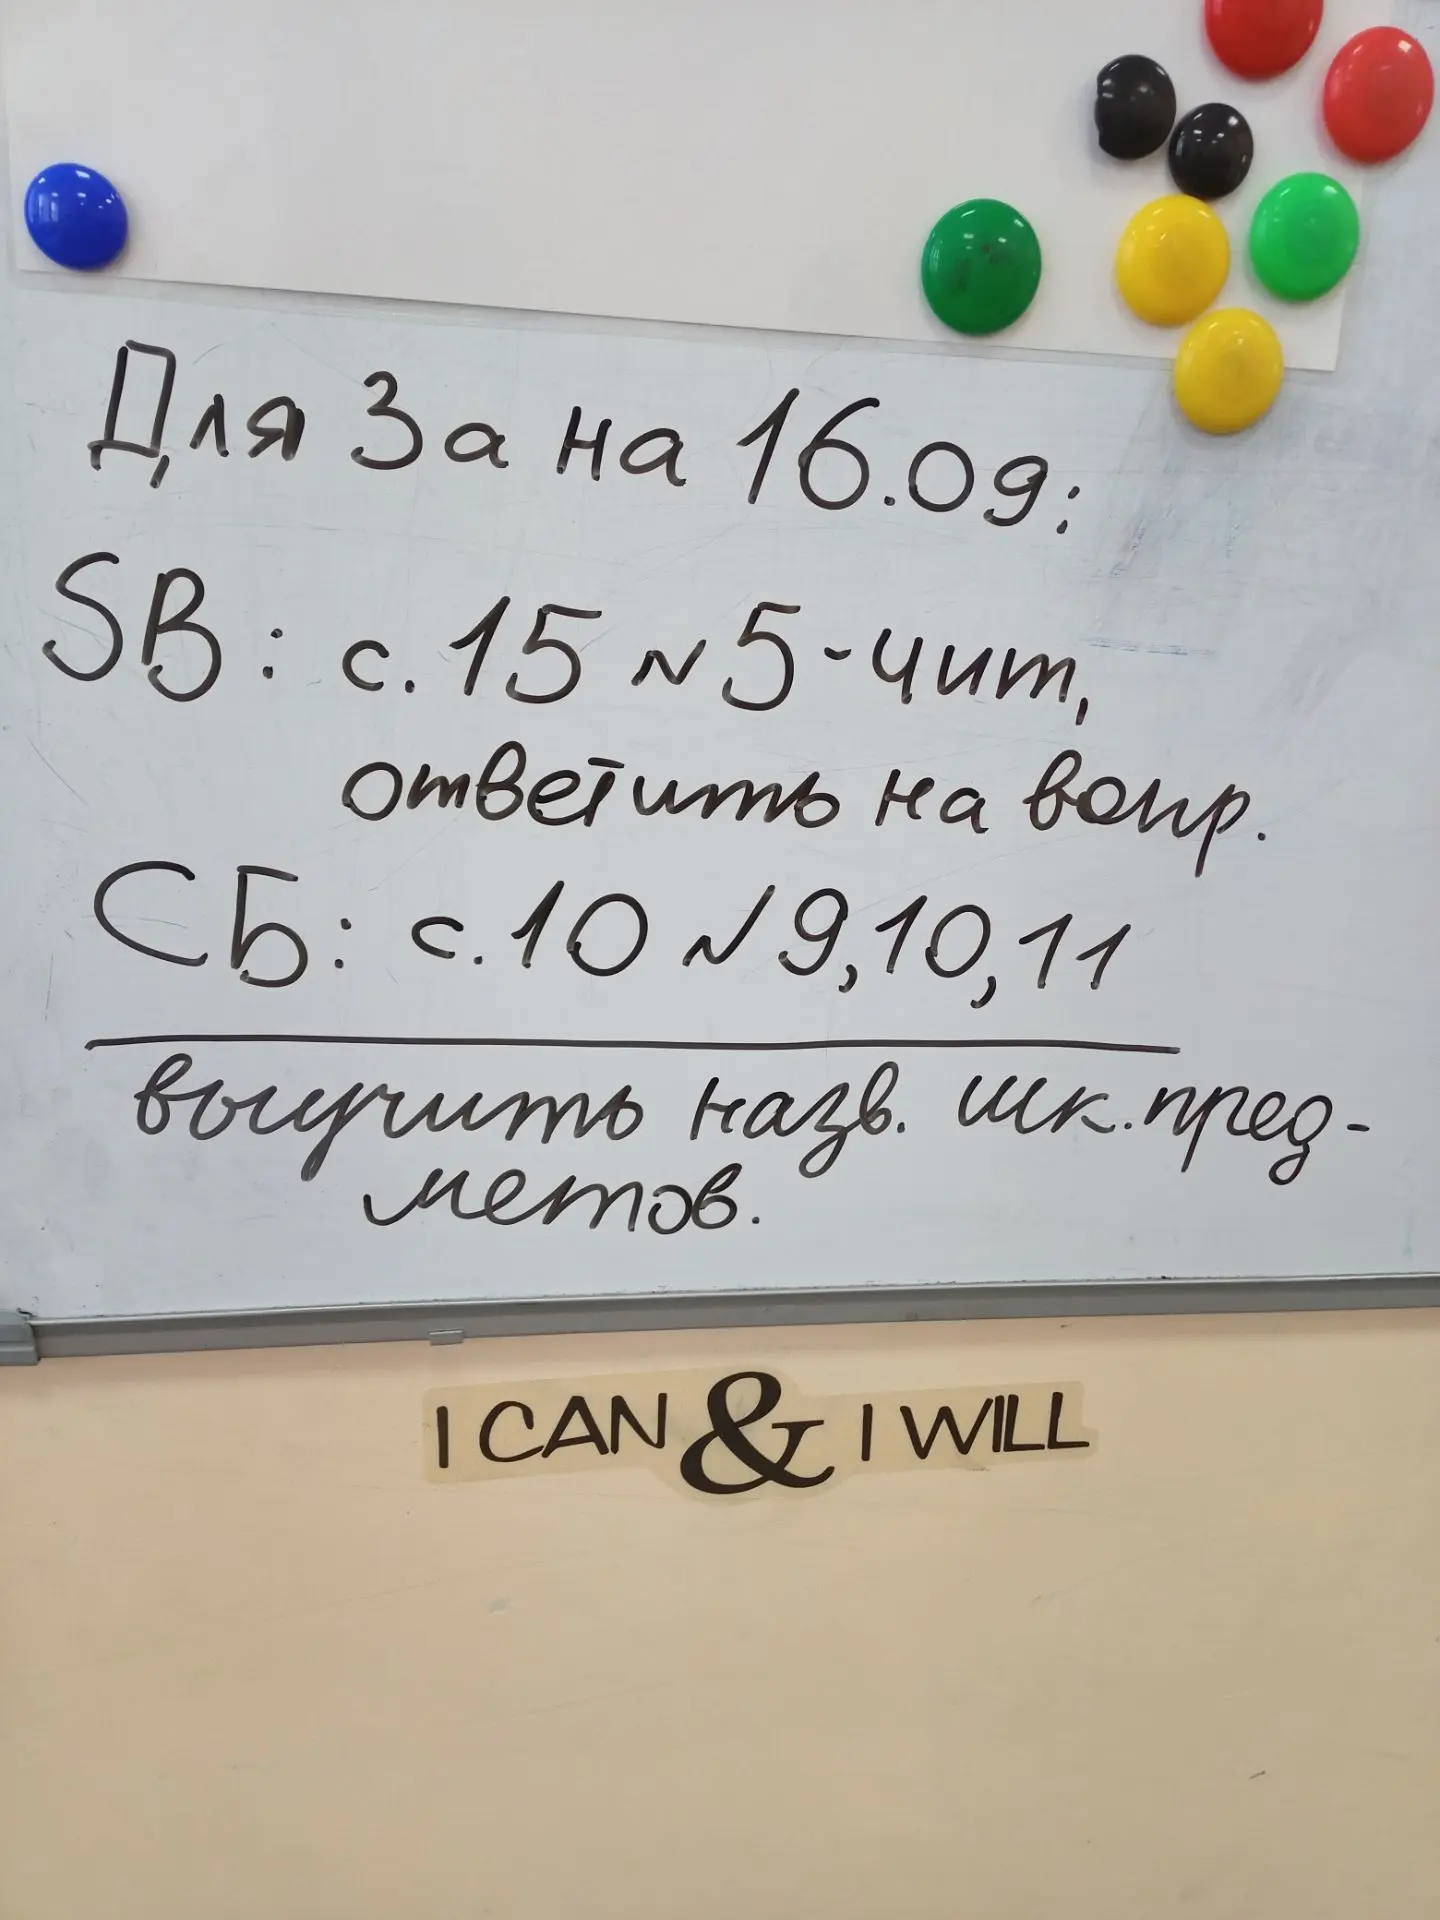 Для 3а на 16.09:
SB: с. 15 N 5 - чит,
ответить на вопр.
СБ: с. 10 N 9, 10, 11
выучить назв. шк. пред-
метов.
I CAN & I WILL